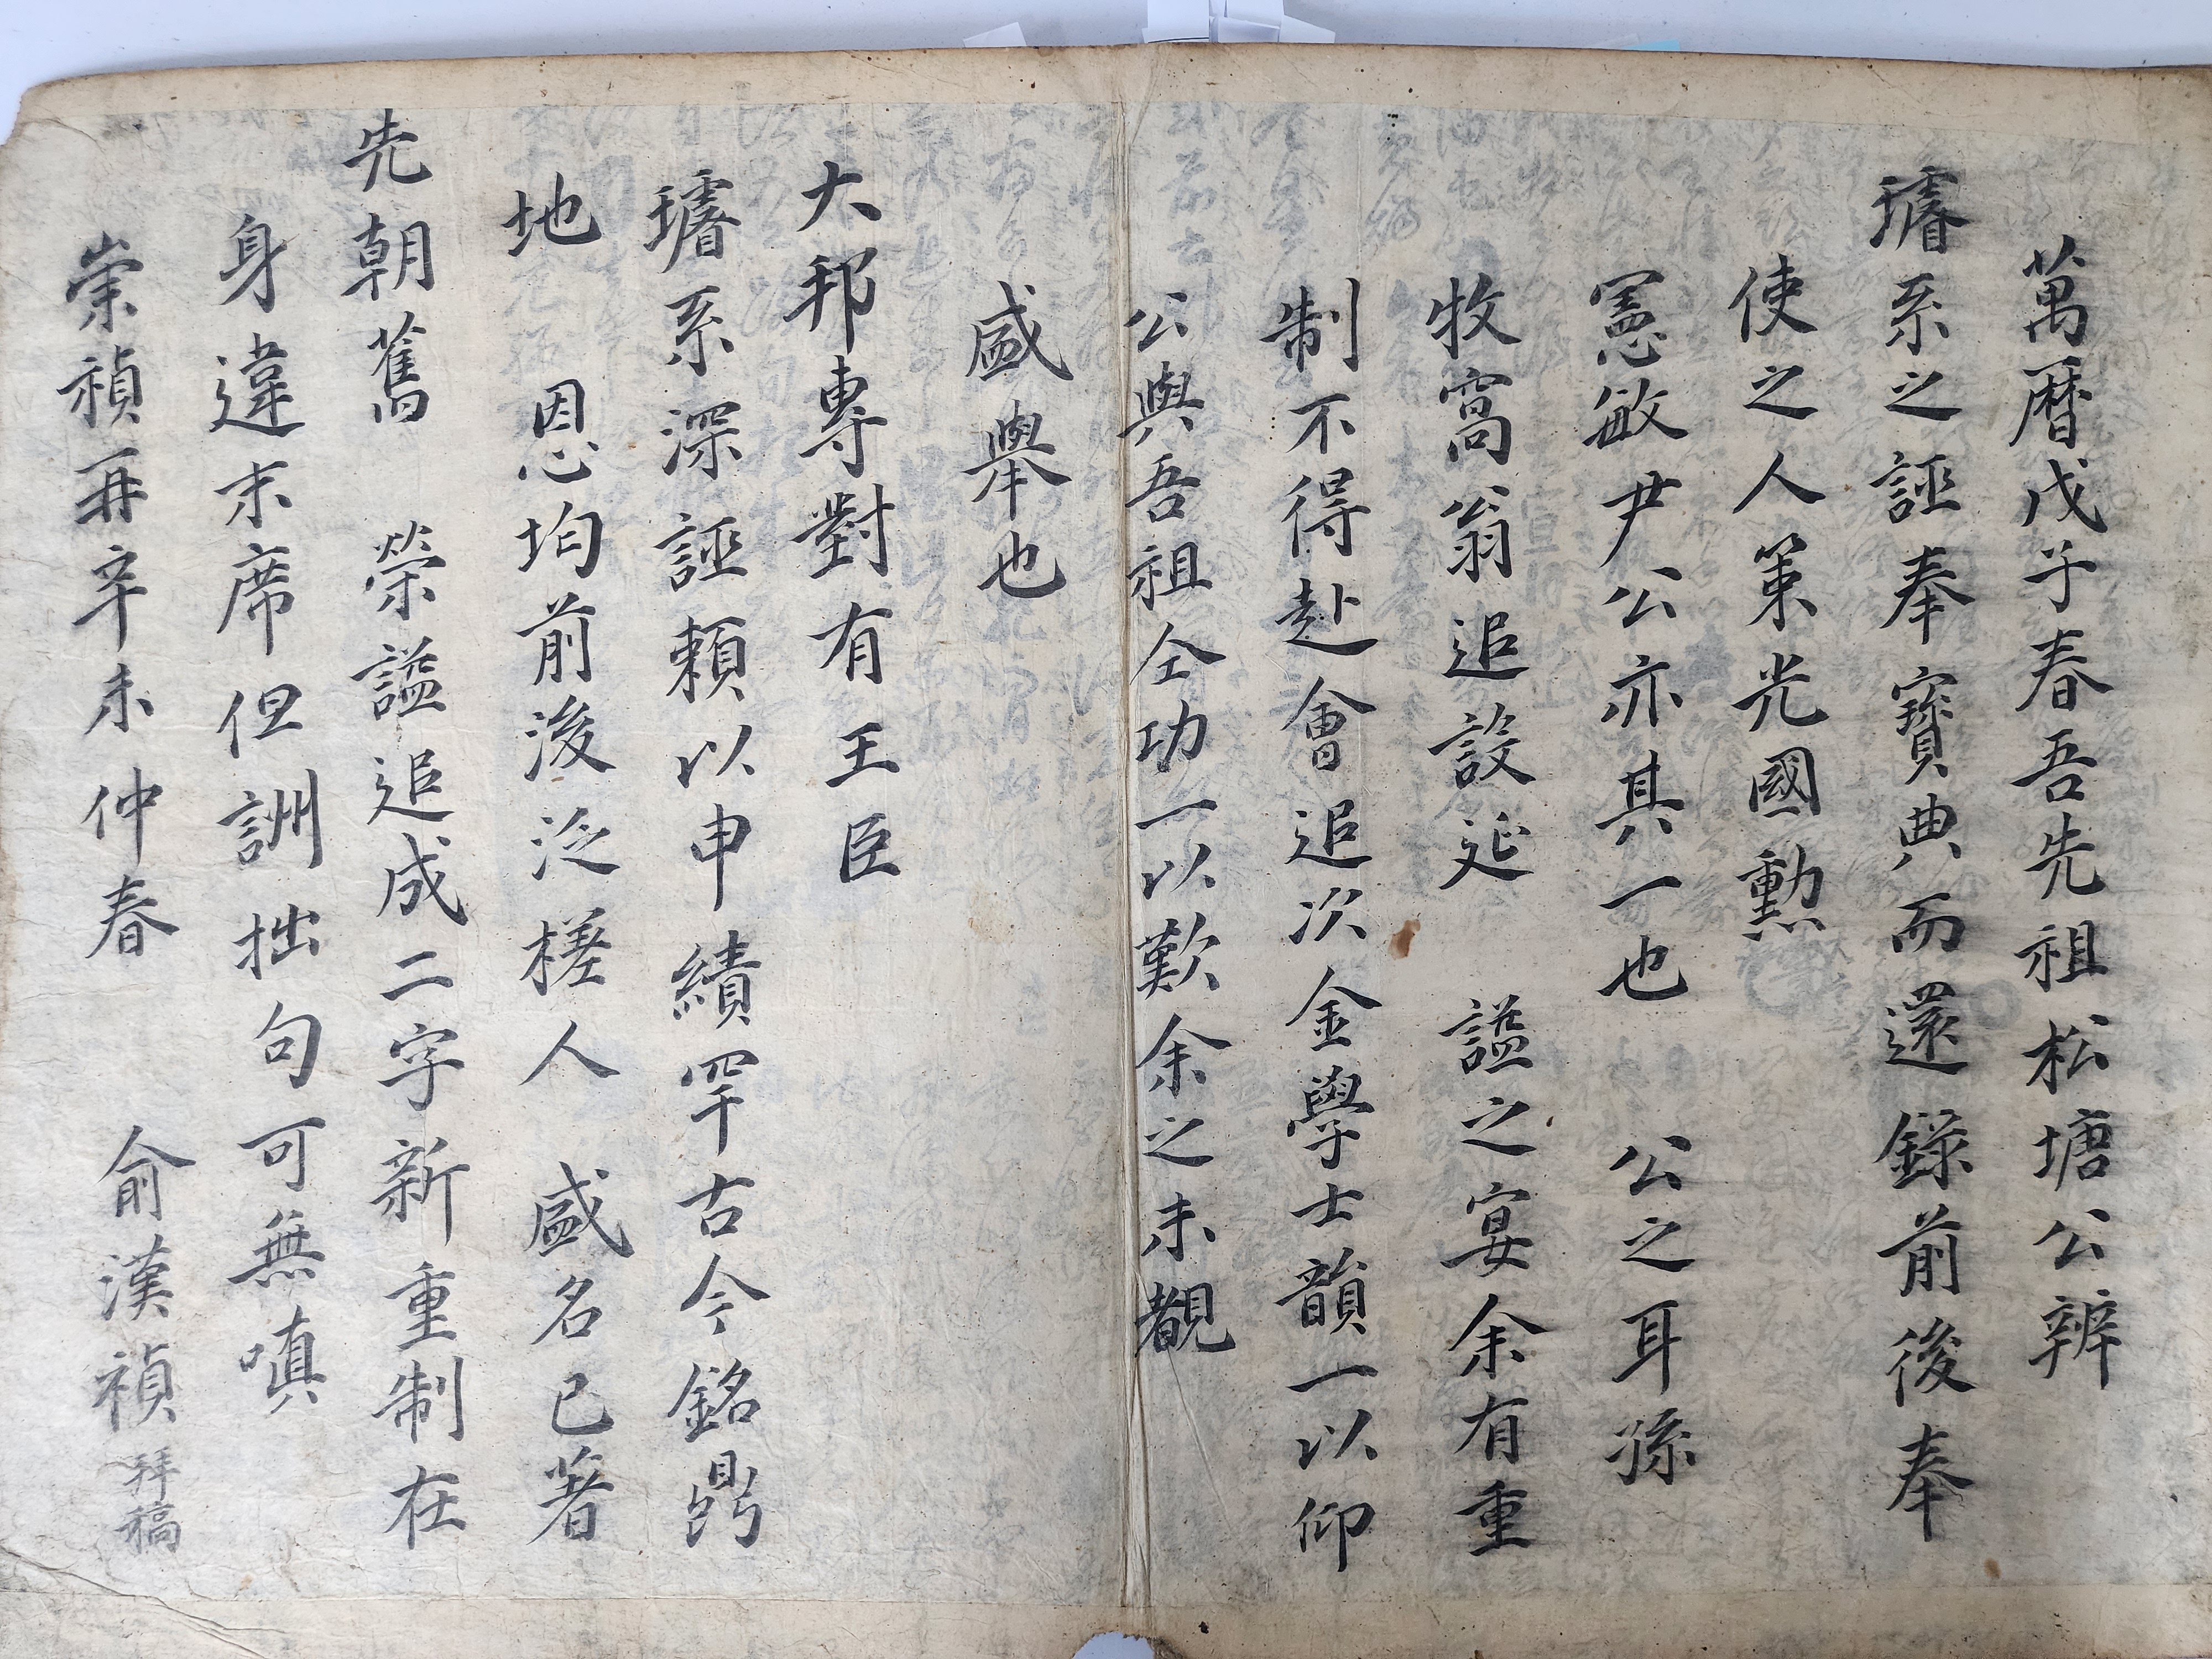 萬曆戊子春吾先祖松塘公辨
璿系之誣奉寶典而還錄前後奉
使之人策光國勳
憲敏尹公亦其一也　公之耳孫
牧窩翁追設延　謚之宴余有重
制不得赴會追次金學士韻一以仰
公與吾祖仝功一以歎余之未覩
盛擧也
大邦專對有王臣
璿系深誣賴以申績罕古今銘鼎
地　恩均前後泛槎人　盛名已著
先朝舊　榮謚追成二字新重制在
身違末席但詶拙句可無嗔
崇禎再辛未仲春　俞漢禎拜稿